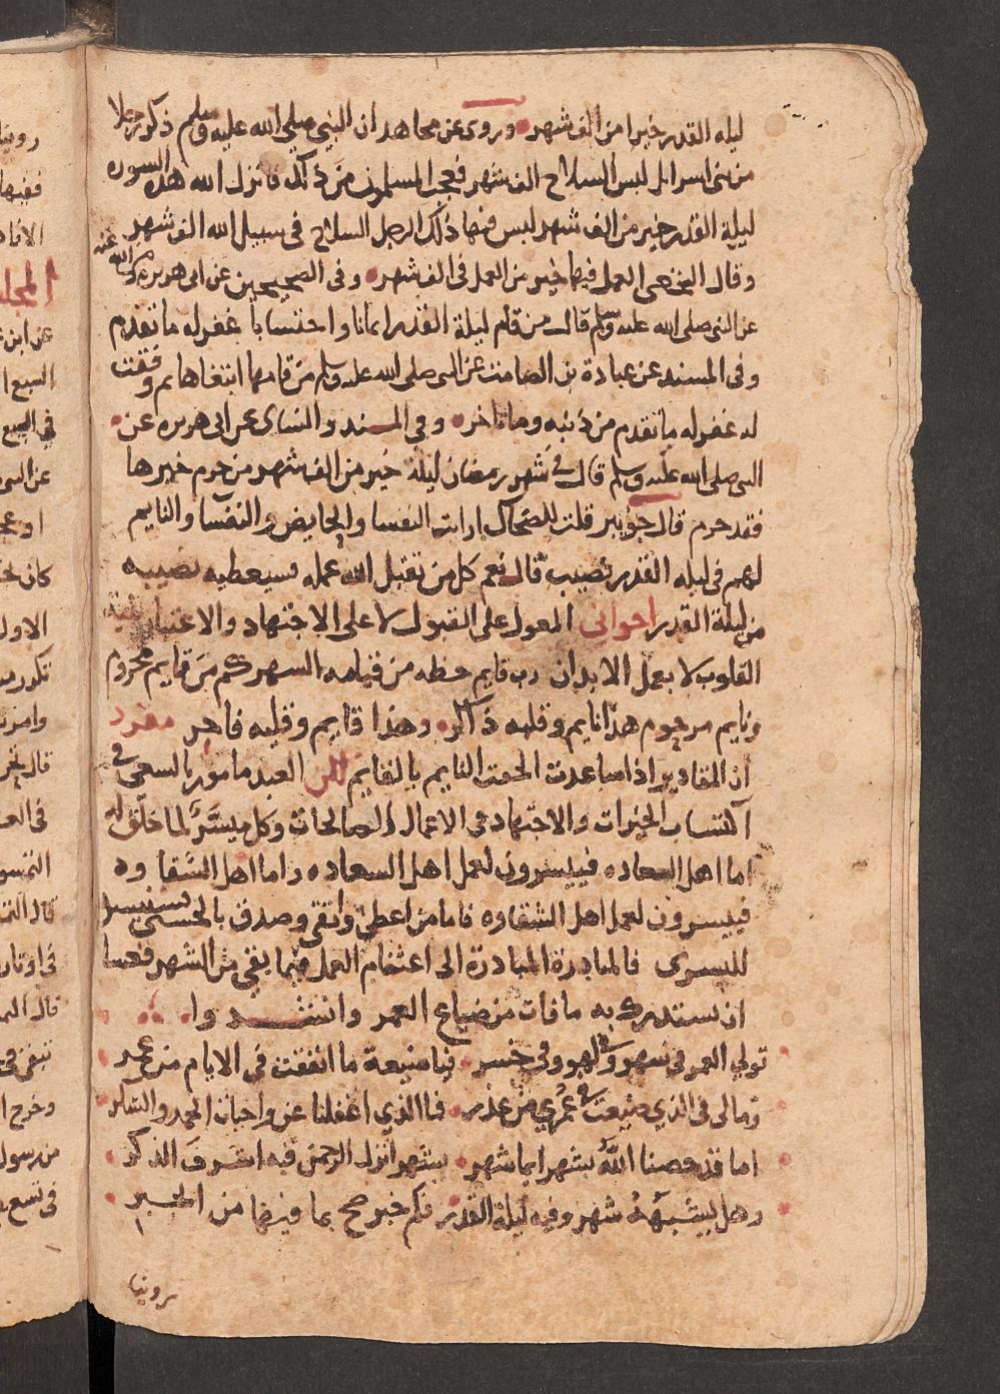 ليله القدر خيرا من الف شهر وروى عن مجاهد ان النبي صلى الله عليه وسلم ذكر رجلا
من بنى اسرايل لبس السلاح الف شهر فعجب المسلمون من ذلك فانزل الله هذه السوره
ليلة القدر خير من الف شهر لبس فيها ذلك الرجل السلاح فى سبيل الله الف شهر
وقال النخعى العمل فيها خير من العمل فى الف شهر وفى الصحيحين عن ابى هريره رضى الله عنه
عن النبى صلى الله عليه وسلم قال من قام ليلة القدر ايمانا واحتسابا غفر له ما تقدم
وفى المسند عن عبادة بن الصامت عن النبى صلى الله عليه وسلم من قامها ابتغاها ثم وقعت
له غفر له ما تقدم من ذنبه وما تاخر وفي المسند والنساى عن ابى هريره عن
النبى صلى الله عليه وسلم قال فى شهر رمضان ليلة خير من الف شهر من حرم خيرها
فقد حرم قال جويبر قلت للضحاك ارايت النفسا والحايض والنفسا والنايم
لهم فى ليله القدر نصيب قال نعم كل من تقبل الله عمله سيعطيه نصيبه
من ليلة القدر اخوانى المعول على القبول لا على الاجتهاد والاعتبار بنية
القلوب لا بعمل الابدان رب قايم حظه من قيامه السهر كم من قايم محروم
ونايم مرحوم هذا نايم وقلبه ذاكر وهذا قايم وقلبه فاجر مفرد
ان المقادير اذا ساعدت الحقت النايم بالقايم لكن العبد مامور بالسعى فى
اكتساب الخيرات والاجتهاد فى الاعمال الصالحات وكل ميسر لما خلق له
اما اهل السعاده فييسرون لعمل اهل السعاده واما اهل الشقاوه
فييسرون لعمل اهل الشقاوه فاما من اعطى واتقى وصدق بالحسنى فسنيسره
لليسرى فالمبادرة المبادرة الى اغتنام العمل فيما بقى من الشهر فعسا
ان يستدرك به ما فات من ضياع العمر وانشدوا
تولي العمر فى سهو وفى لهو وفى خسر فيا ضيعة ما انفقت فى الايام من عمر
وما لى فى الذي ضيعت فى عمري من عذر فما الذي اغفلنا عن واجبات الحمد والشكر
اما قد خصنا الله بشهر ايما شهر بشهر انزل الرحمن فيه اشرف الذكر
وهل يشبهه شهر وفيه ليلة القدر فكم خبر صح بما فيها من الخير
روينا